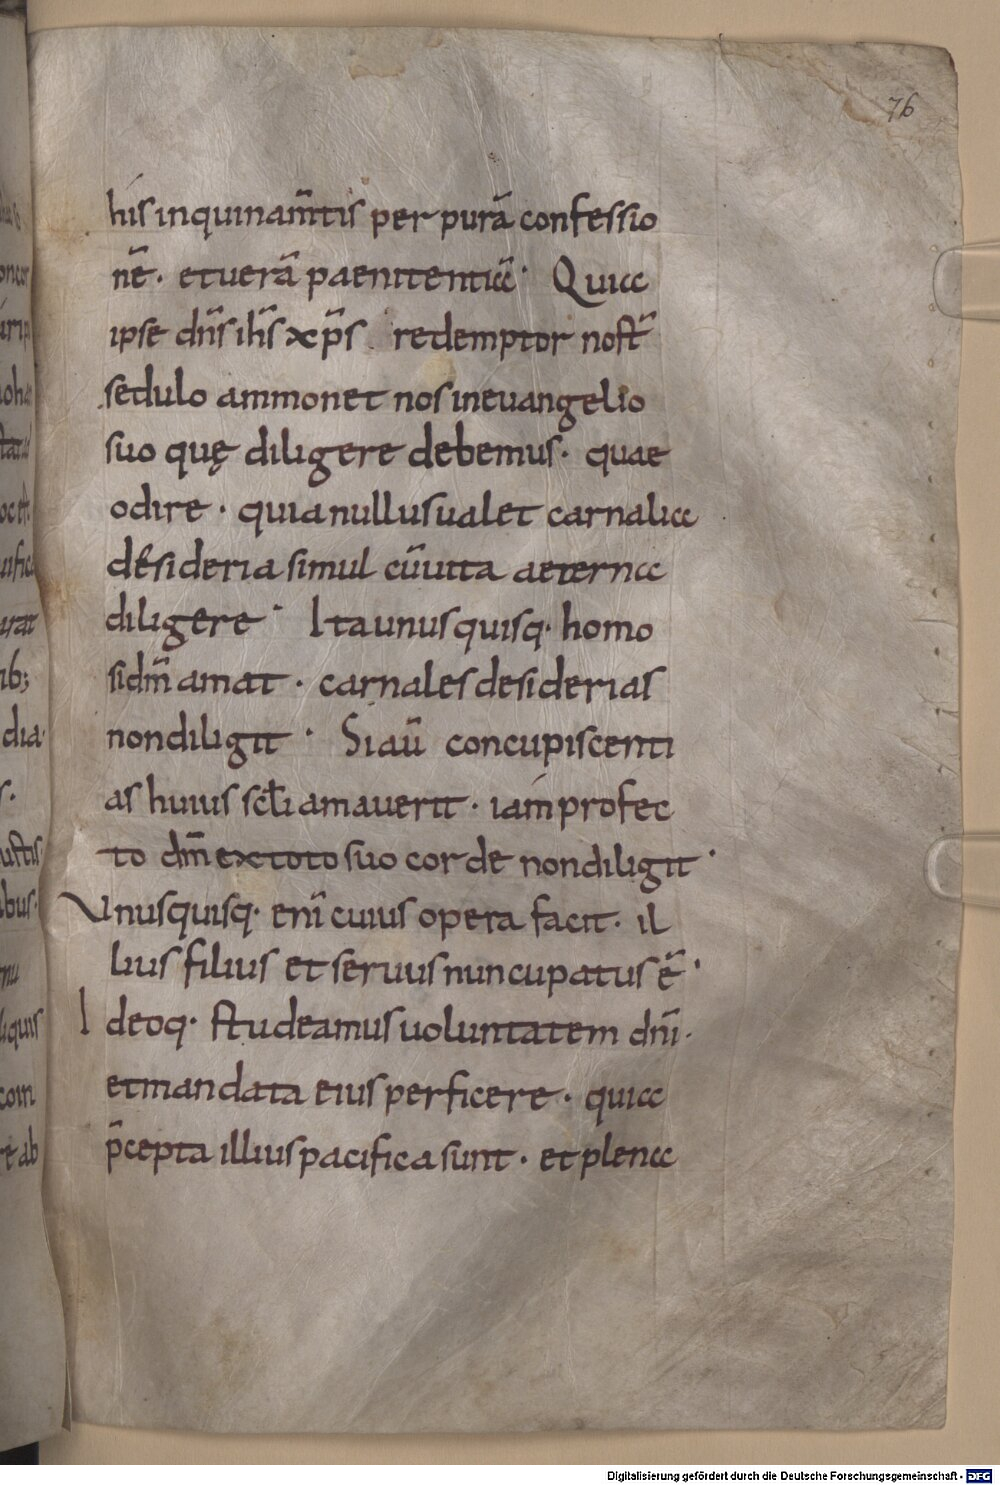 76
his inquinam̄tis per purā confessio
nē· et uerā paenitentiā· Quia
ipse dn̄s ih̄s xp̄s redemptor nost̄
sedulo ammonet nos in euangelio
suo quę diligere debemus· quae
odire· quia nullus ualet carnalia
desideria simul cū uita aeterna
diligere· Ita unusquisq· homo
si dm̄ amat· carnales desiderias
non diligit· Si aū concupiscenti
as huius scl̄i amauerit· iam profec
to dm̄ ex toto suo corde non diligit·
Unusquisq· enī cuius opera facit· il
lius filius et seruus nuncupatus ē·
Ideoq· studeamus uoluntatem dn̄i·
et mandata eius perficere· quia
p̄cepta illius pacifica sunt· et plena
Digitalisierung gefördert durch die Deutsche Forschungsgemeinschaft - DFG